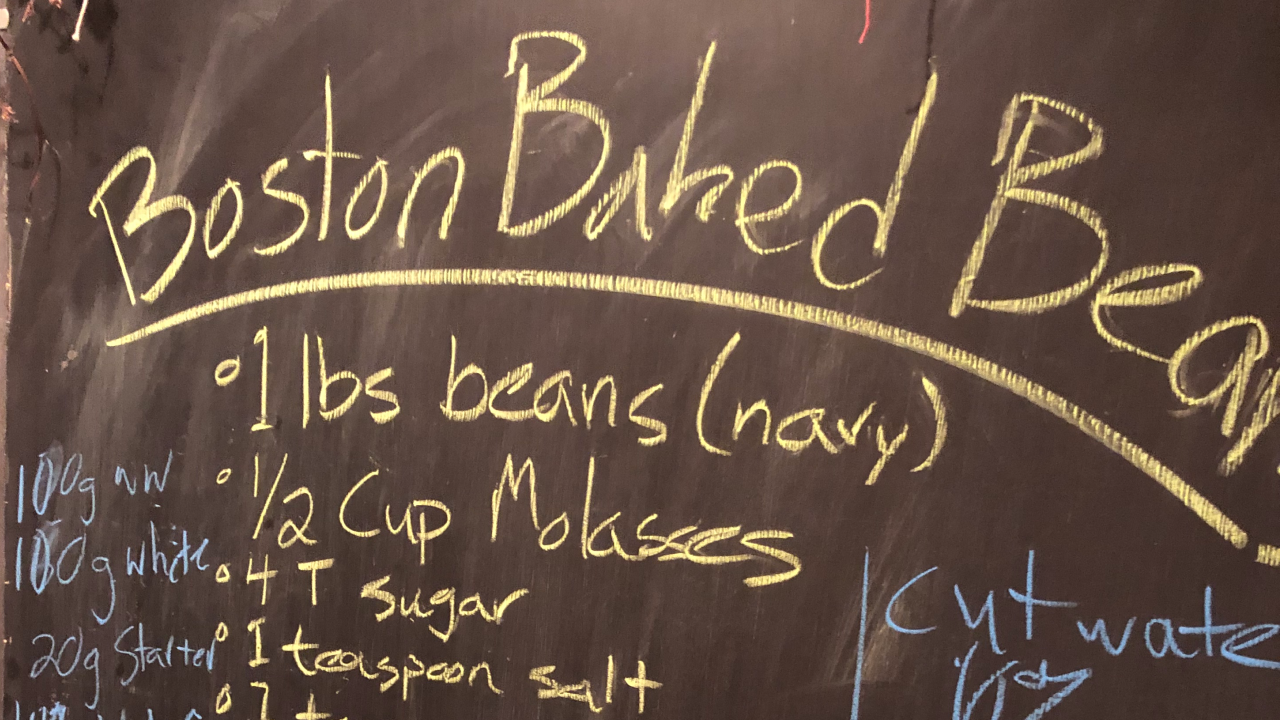 Boston Baked Bea
1 lbs beans (navy)
1/2 Cup Molasses
4 T sugar
1 teaspoon salt
1 t
100g
100g white
20g Starter
Cut wate